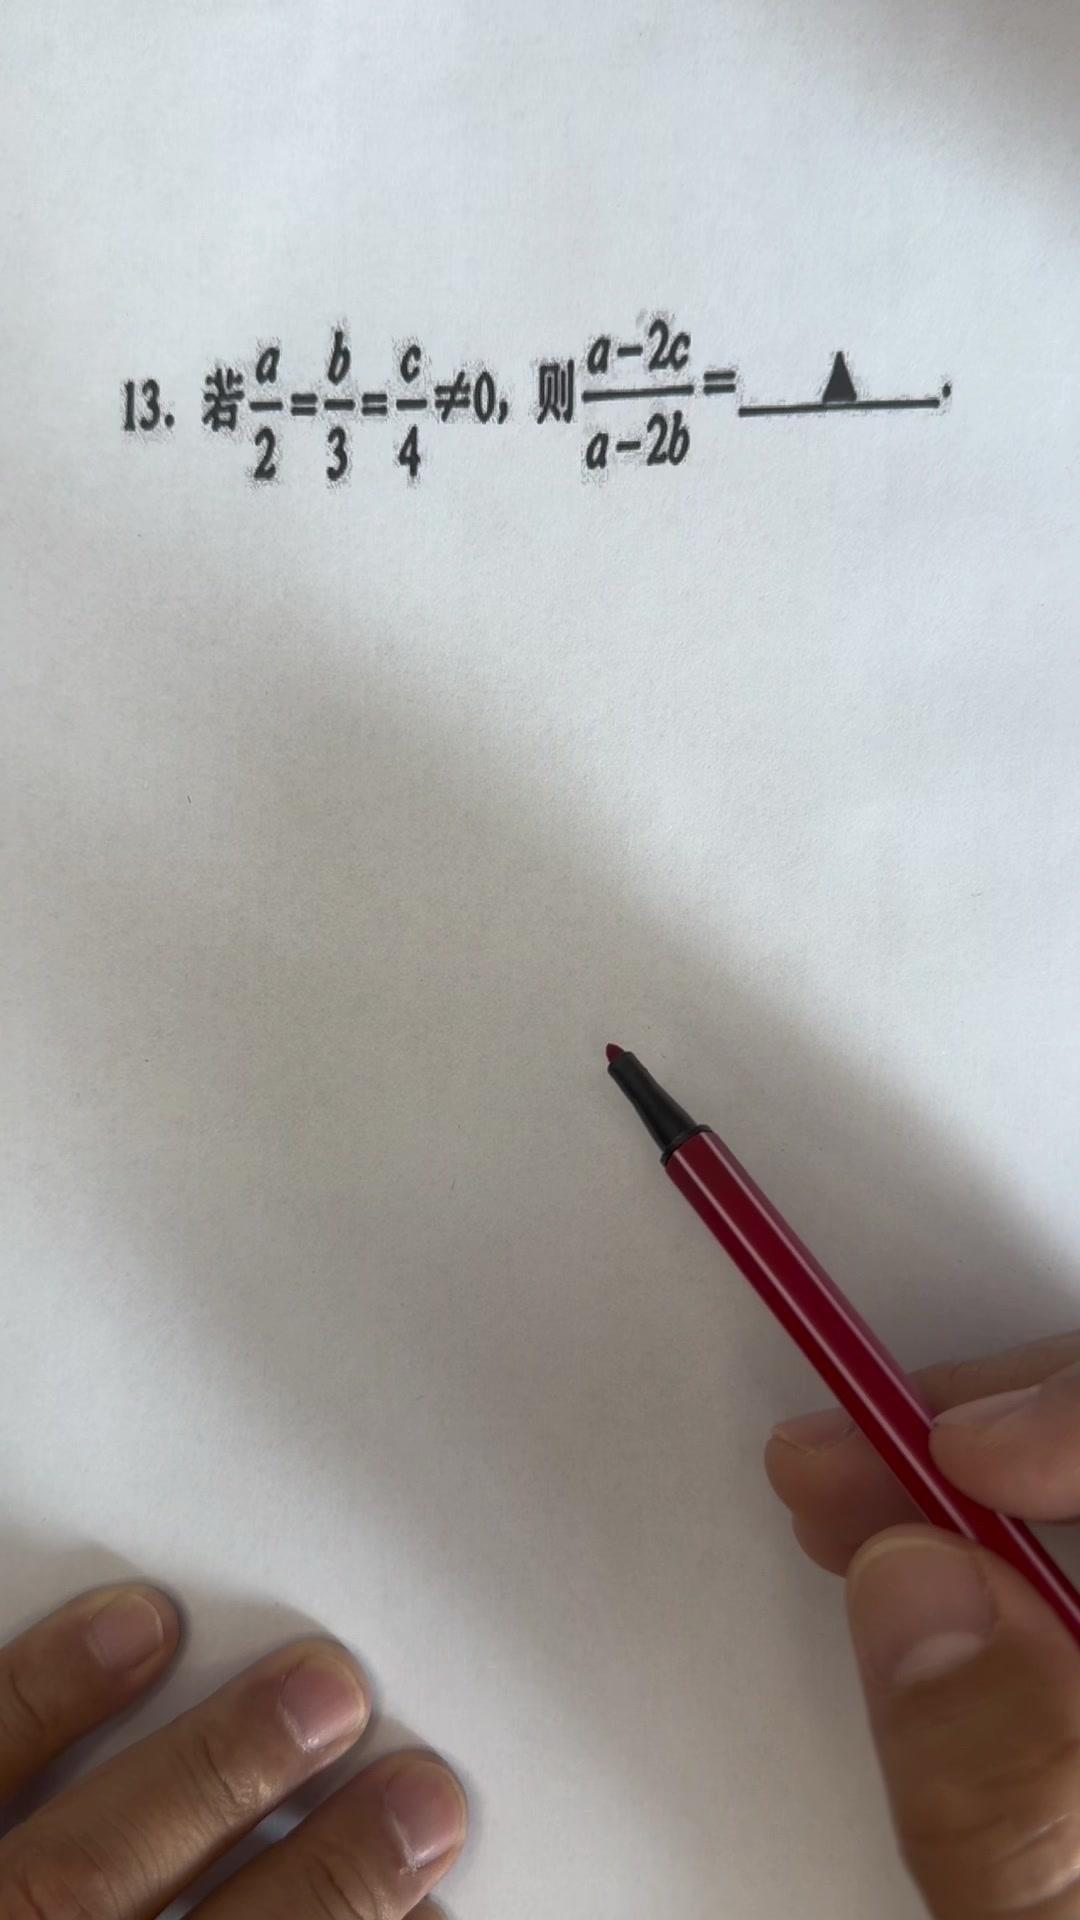 13. 若a/2=b/3=c/4≠0, 则(a-2c)/(a-2b)=___▲___.